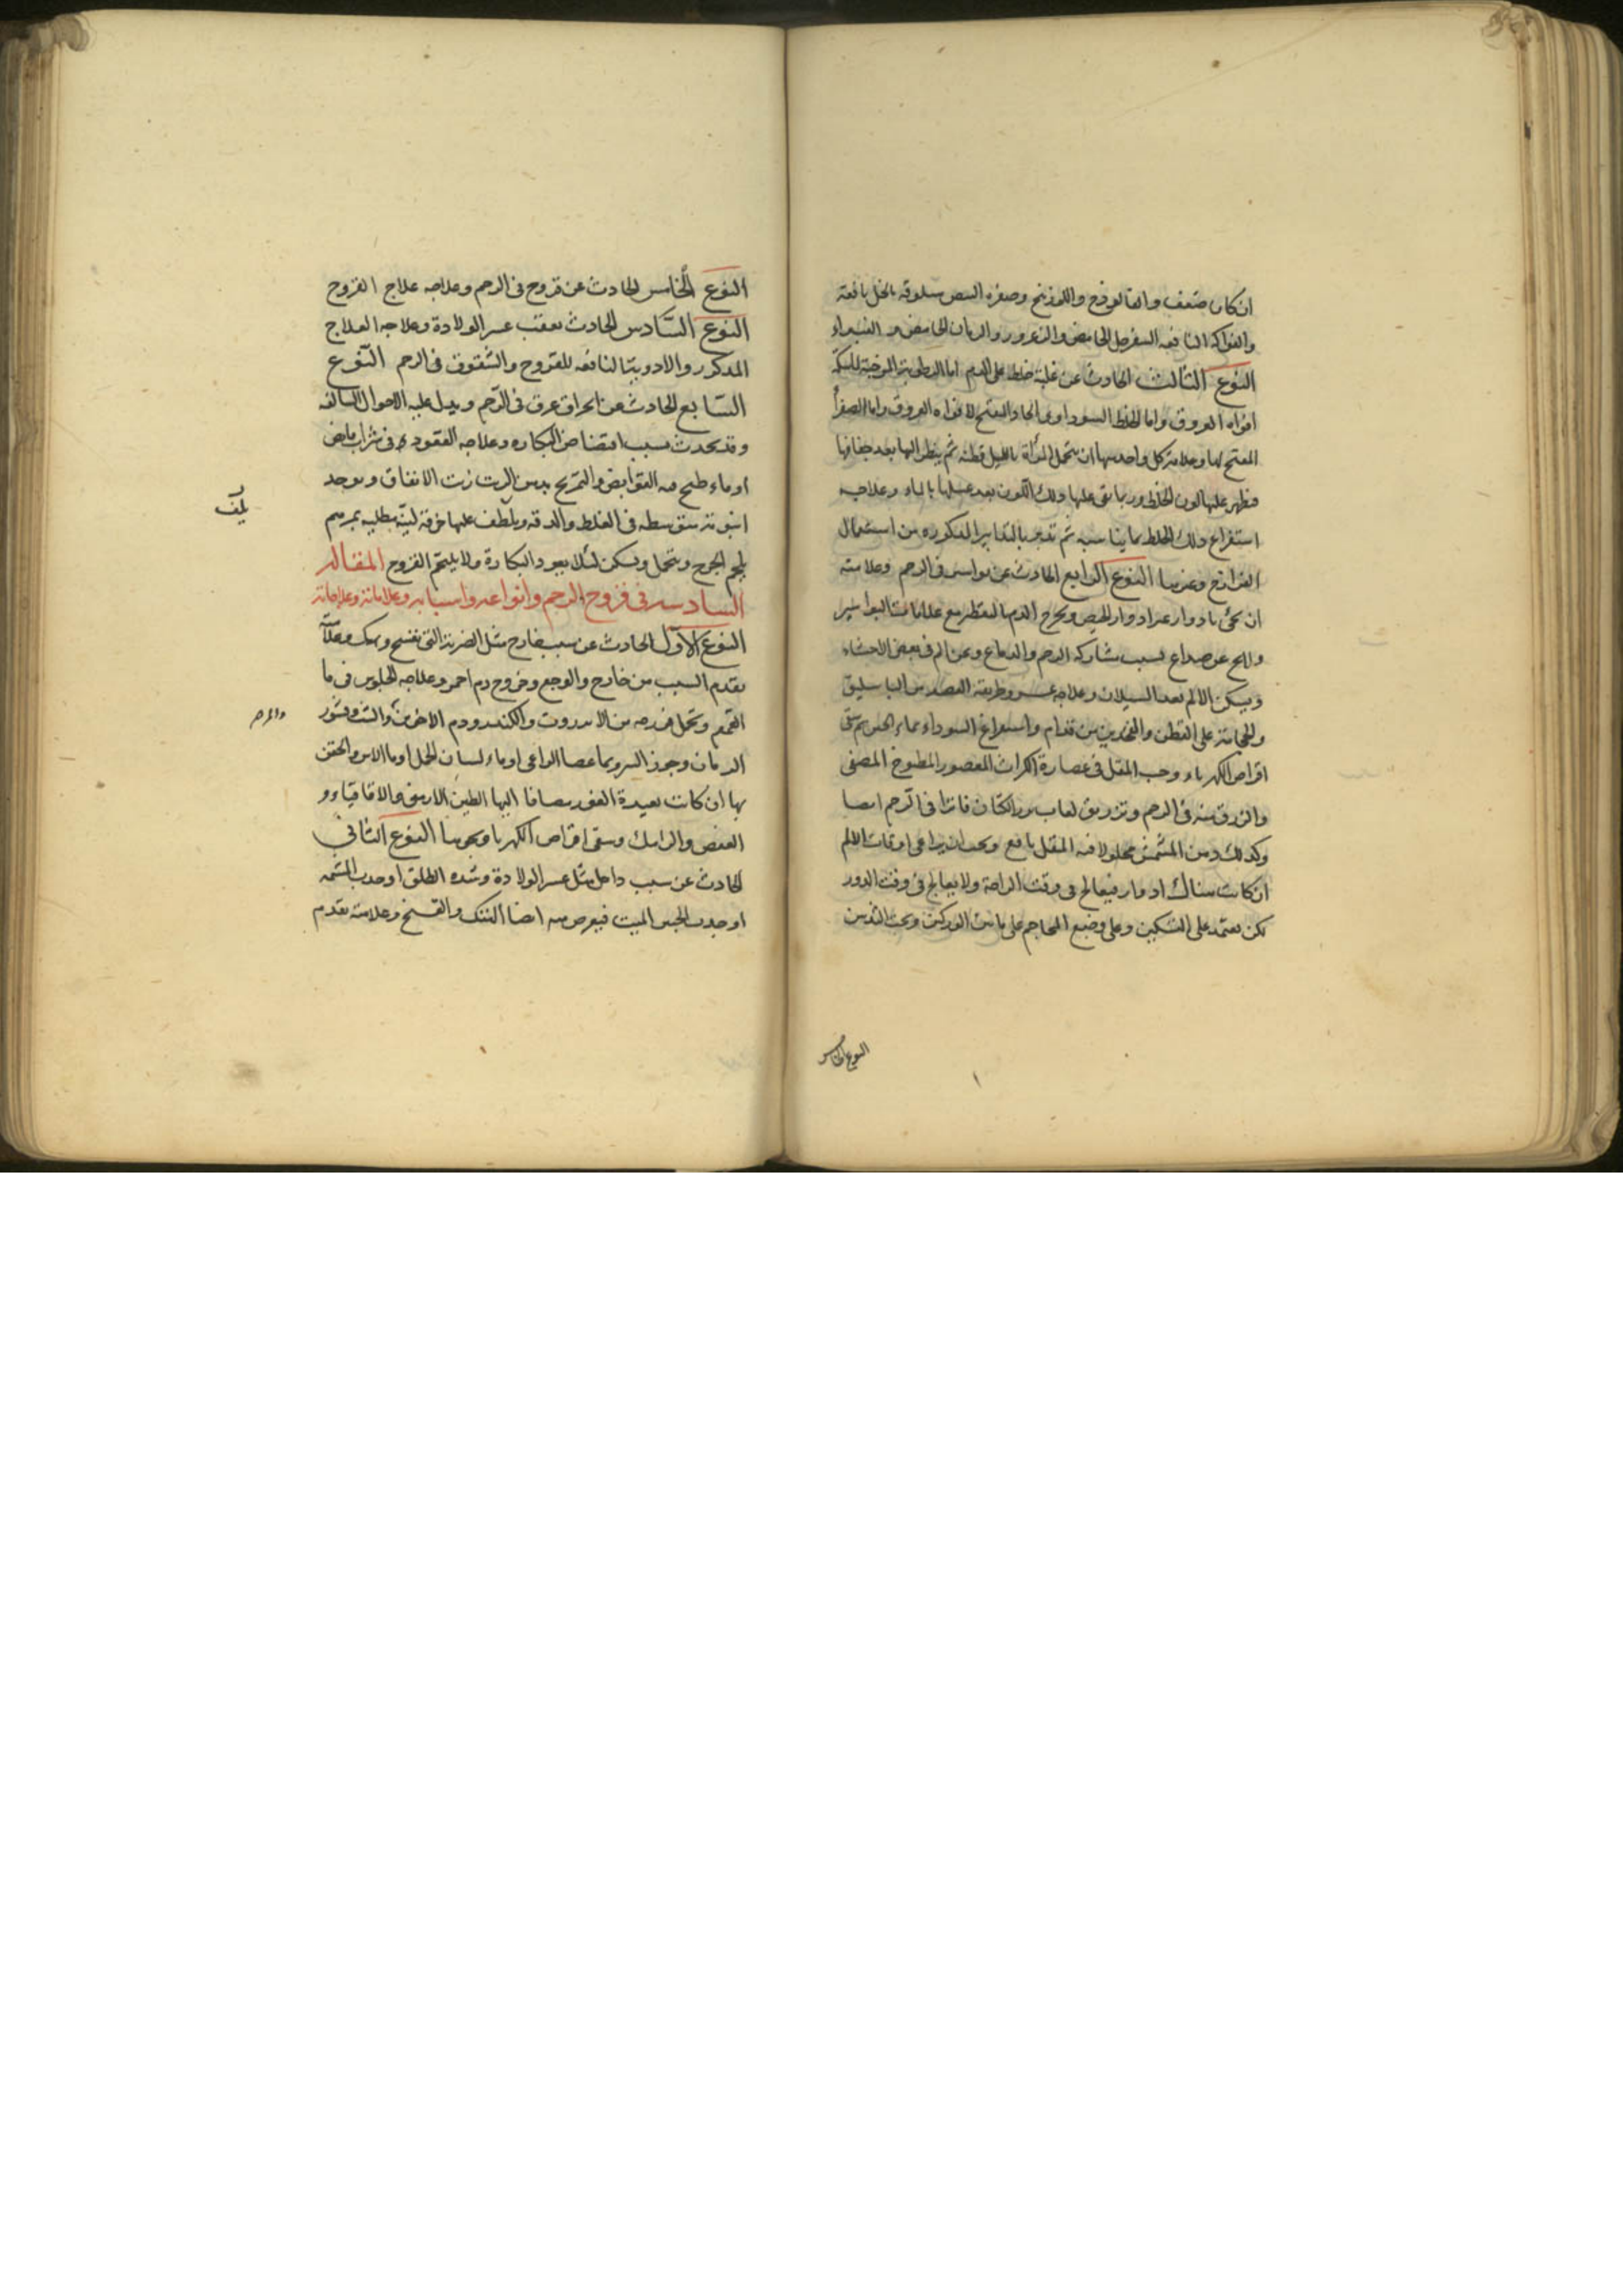 ان كان ضعف والفالوذج واللوزينج وصفره البيض مسلوقه بالخل نافعة
والفواكه النافعه السفرجل الحامض والزعرور والرمان الحامض و الغبيراء
النوع الثالث الحادث عن غلبة خلط على الدم اما الرطوبة المرخية للمسكة
افواه العروق واما الخلط السوداوى الحاد المفتح لافواه العروق واما الصفرا
المفتح لها وعلامة كل واحد منها ان تتحمل المرأة بالليل قطنه ثم ينظر اليها بعد جفافها
فيظهر عليها لون الخلط وربما بقى عليها ذلك اللون بعد غسلها بالماء وعلاجه
استفراغ ذلك الخلط بما يناسبه ثم تدبر بالتدابير المذكوره من استعمال
الفرازج وغيرها النوع الرابع الحادث عن بواسير فى الرحم وعلامته
ان يجئ بادوار غير ادوار الحيض ويخرج الدم بالتقطر مع علامات البواسير
ولا يخ عن صداع لسبب مشاركه الرحم والدماغ وعن الم فى بعض الاحشاء
ويسكن الالم بعد السيلان وعلاجه عسر وطريقته الفصد من الباسليق
والحجامة على القطن والفخذين من قدام واستفراغ السوداء بماء الجبن ثم سقى
اقراص الكهرباء وحب المقل فى عصارة الكراث المعصور المطبوخ المصفى
والزرق منه فى الرحم وتزريق لعاب بزر الكتان فاترا فى الرحم ايضا
وكذلك دهن المشمش محلولا فيه المقل نافع ويجب ان يراعى اوقات الالم
ان كانت هناك ادوار فيعالج فى وقت الراحة ولا يعالج فى وقت الدور
لكن يعتمد على التسكين وعلى وضع المحاجم على ما بين الوركين وتحت الثديين
النوع الخامس
النوع الخامس الحادث عن قروح فى الرحم وعلاجه علاج القروح
النوع السادس الحادث بعقب عسر الولادة وعلاجه العلاج
المذكور والادوية النافعه للقروح والشقوق فى الرحم النوع
السابع الحادث عن انخراق عرق فى الرحم ويدل عليه الاحوال السالفه
وقد يحدث بسبب افتضاض البكاره وعلاجه القعود فى شراب قابض
او ماء طبخ فيه القوابض والتمريخ بدهن الزيت زيت الانفاق ويوخذ
انبوبة متوسطه فى الغلظ والدقه ويلطف عليها خرقة لينة مطليه بمرهم
يلف
يلحم الجرح وتتحمل ويسكن لئلا يعود البكارة ولا يلتحم القروح المقاله
السادسه فى قروح الرحم وانواعه واسبابه وعلاماته وعلاجاته
النوع الاول الحادث عن سبب خارج مثل الضربة التى تفسخ وتهتك وعلامته
تقدم السبب من خارج والوجع وخروج دم احمر وعلاجه الجلوس فى ما
القمقم وتحمل فرزجه من الانزروت والكندر ودم الاخوين والشب وقشور
الرمان وجوز السرو بما عصا الراعى او ماء لسان الحمل او ما الاس والحقن
بها ان كانت بعيدة الغور مضافا اليها الطين الارمنى والاقاقياء و
العفص والرامك وسقى اقراص الكهربا ونحوها النوع الثانى
الحادث عن سبب داخل مثل عسر الولادة وشده الطلق او جذب المشيمه
او جذب الجنين الميت فيعرض منه ايضا الهتك والفسخ وعلامته تقدم